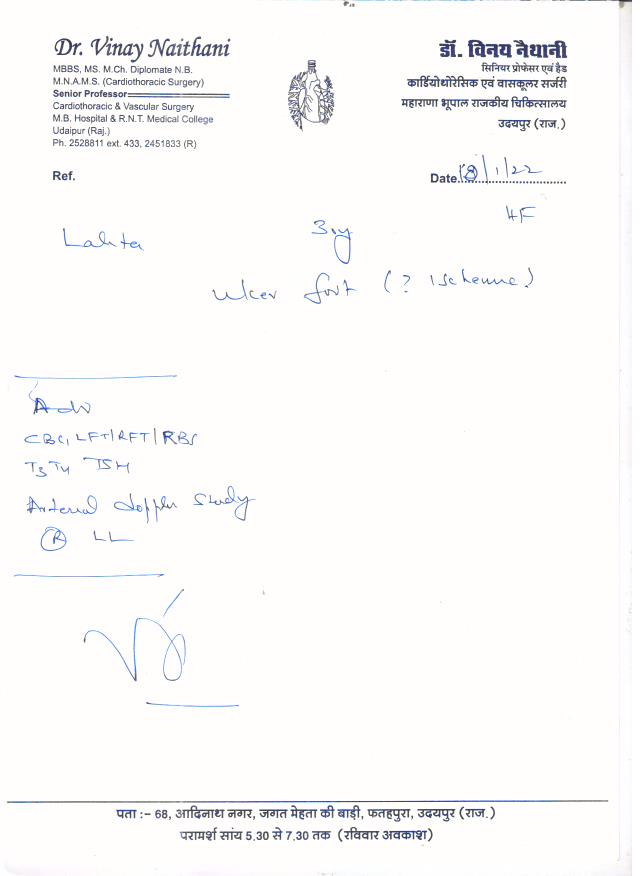 Dr. Vinay Naithani
MBBS, MS. M.Ch. Diplomate N.B.
M.N.A.M.S. (Cardiothoracic Surgery)
Senior Professor
Cardiothoracic & Vascular Surgery
M.B. Hospital & R.N.T. Medical College
Udaipur (Raj.)
Ph. 2528811 ext. 433, 2451833 (R)
डॉ. विनय नैथानी
सिनियर प्रोफेसर एवं हैड
कार्डियोथोरेसिक एवं वासकूलर सर्जरी
महाराणा भूपाल राजकीय चिकित्सालय
उदयपुर (राज.)
Ref.
Date 18/1/22
Lalita 3 1y
ulcer foot (? Ischemic)
Adv
CBC, LFT/RFT/RBS
T3 T4 TSH
Arterial doppler study
(R) LL
पता :– 68, आदिनाथ नगर, जगत मेहता की बाड़ी, फतहपुरा, उदयपुर (राज.)
परामर्श सांय 5.30 से 7.30 तक (रविवार अवकाश)